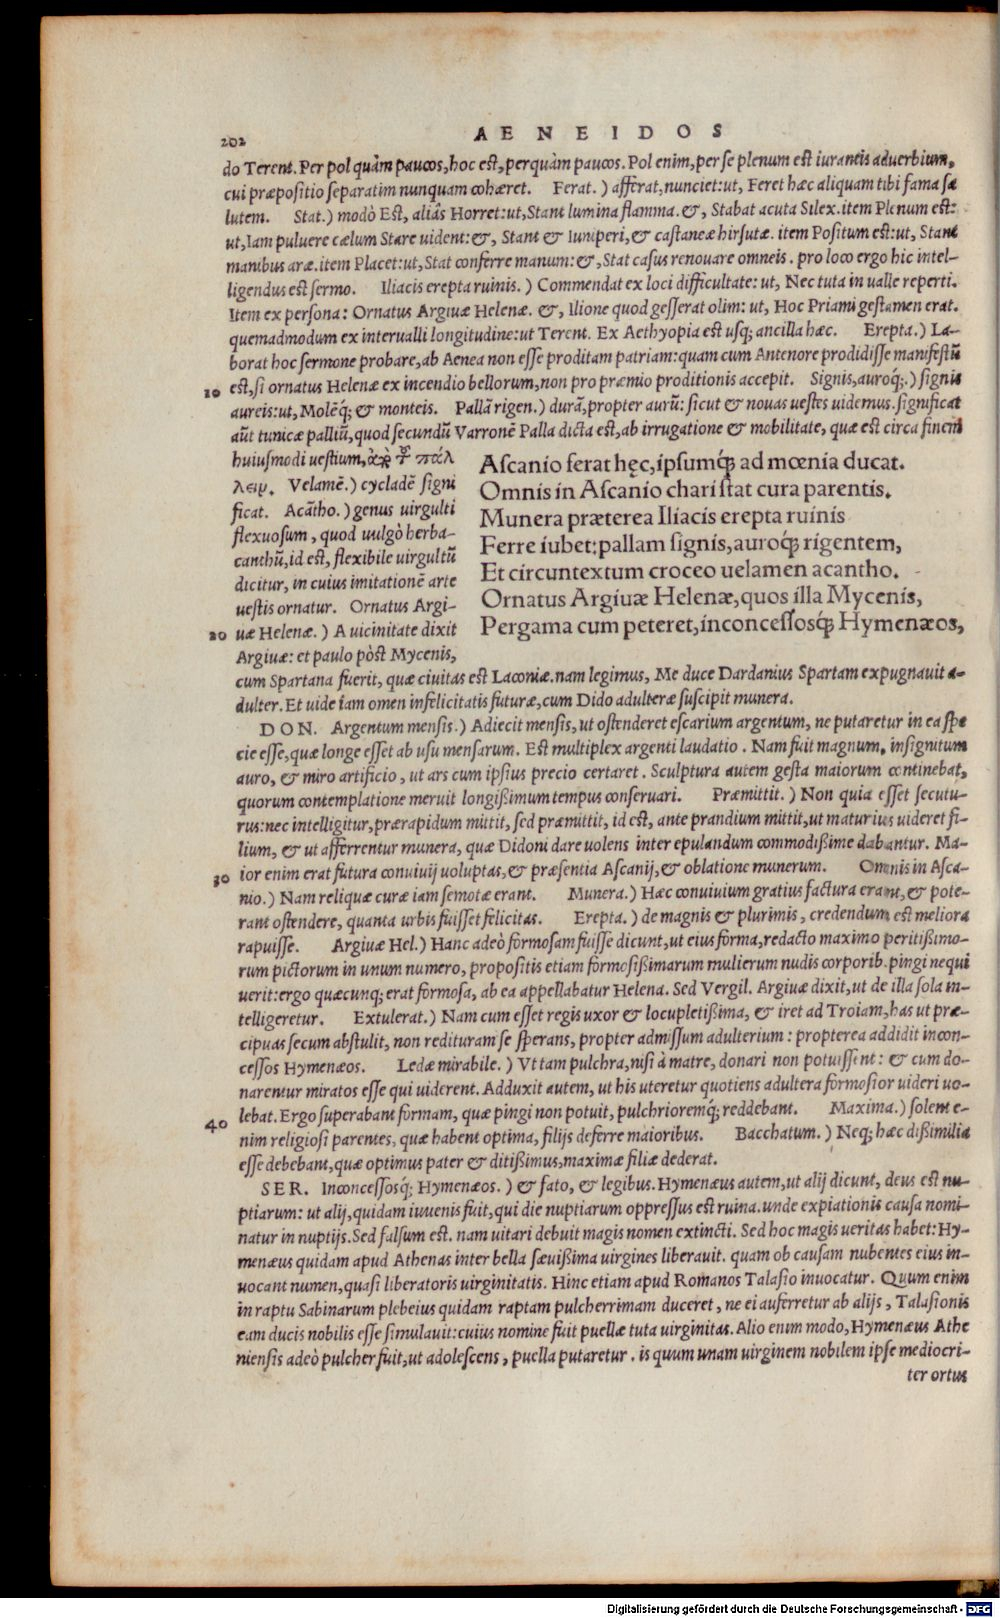 202
AENEIDOS
do Terent. Per pol quàm paucos, hoc est, perquàm paucos. Pol enim, per se plenum est iurantis aduerbium,
cui præpositio separatim nunquam cohæret. Ferat. ) afferat, nunciet: ut, Feret hæc aliquam tibi fama sa
lutem. Stat. ) modò Est, aliâs Horret: ut, Stant lumina flamma. &, Stabat acuta Silex. item Plenum est:
ut, Iam puluere cælum Stare uident: &, Stant & Iuniperi, & castaneæ hirsutæ. item Positum est: ut, Stant
manibus aræ. item Placet: ut, Stat conferre manum: &, Stat casus renouare omneis. pro loco ergo hic intel-
ligendus est sermo. Iliacis erepta ruinis. ) Commendat ex loci difficultate: ut, Nec tuta in ualle reperti.
Item ex persona: Ornatus Argiuæ Helenæ. &, Ilione quod gesserat olim: ut, Hoc Priami gestamen erat.
quemadmodum ex interualli longitudine: ut Terent. Ex Aethyopia est usq; ancilla hæc. Erepta. ) La-
borat hoc sermone probare, ab Aenea non esse proditam patriam: quam cum Antenore prodidisse manifestũ
10 est, si ornatus Helenæ ex incendio bellorum, non pro præmio proditionis accepit. Signis, auroq́;. ) signis
aureis: ut, Molẽq́; & monteis. Pallã rigen. ) durã, propter aurũ: sicut & nouas uestes uidemus. significat
aũt tunicæ palliũ, quod secundũ Varronẽ Palla dicta est, ab irrugatione & mobilitate, quæ est circa finem
huiusmodi uestium, ἀπὸ τοῦ πάλ
λειν. Velamẽ. ) cycladẽ signi
ficat. Acãtho. ) genus uirgulti
flexuosum, quod uulgò herba-
canthũ, id est, flexibile uirgultũ
dicitur, in cuius imitationẽ arte
uestis ornatur. Ornatus Argi-
20 uæ Helenæ. ) A uicinitate dixit
Argiuæ: et paulo pòst Mycenis,
Ascanio ferat hęc, ipsumq́; ad mœnia ducat.
Omnis in Ascanio chari stat cura parentis.
Munera præterea Iliacis erepta ruinis
Ferre iubet: pallam signis, auroq́; rigentem,
Et circuntextum croceo uelamen acantho.
Ornatus Argiuæ Helenæ, quos illa Mycenis,
Pergama cum peteret, inconcessosq́; Hymenæos,
cum Spartana fuerit, quæ ciuitas est Laconiæ. nam legimus, Me duce Dardanius Spartam expugnauit a-
dulter. Et uide iam omen infelicitatis futuræ, cum Dido adulteræ suscipit munera.
DON. Argentum mensis. ) Adiecit mensis, ut ostenderet escarium argentum, ne putaretur in ea spe
cie esse, quæ longe esset ab usu mensarum. Est multiplex argenti laudatio. Nam fuit magnum, insignitum
auro, & miro artificio, ut ars cum ipsius precio certaret. Sculptura autem gesta maiorum continebat,
quorum contemplatione meruit longißimum tempus conseruari. Præmittit. ) Non quia esset secutu-
rus: nec intelligitur, prærapidum mittit, sed præmittit, id est, ante prandium mittit, ut maturius uideret fi-
lium, & ut afferrentur munera, quæ Didoni dare uolens inter epulandum commodißime dabantur. Ma-
30 ior enim erat futura conuiuij uoluptas, & præsentia Ascanij, & oblatione munerum. Omnis in Asca-
nio. ) Nam reliquæ curæ iam semotæ erant. Munera. ) Hæc conuiuium gratius factura erant, & pote-
rant ostendere, quanta urbis fuisset felicitas. Erepta. ) de magnis & plurimis, credendum est meliora
rapuisse. Argiuæ Hel. ) Hanc adeò formosam fuisse dicunt, ut eius forma, redacto maximo peritißimo-
rum pictorum in unum numero, propositis etiam formosißimarum mulierum nudis corporib. pingi nequi
uerit: ergo quæcunq; erat formosa, ab ea appellabatur Helena. Sed Vergil. Argiuæ dixit, ut de illa sola in-
telligeretur. Extulerat. ) Nam cum esset regis uxor & locupletißima, & iret ad Troiam, has ut præ-
cipuas secum abstulit, non redituram se sperans, propter admissum adulterium: propterea addidit incon-
cessos Hymenæos. Ledæ mirabile. ) Vt tam pulchra, nisi à matre, donari non potuissent: & cum do-
narentur miratos esse qui uiderent. Adduxit autem, ut his uteretur quotiens adultera formosior uideri uo-
40 lebat. Ergo superabant formam, quæ pingi non potuit, pulchrioremq́; reddebant. Maxima. ) solent e-
nim religiosi parentes, quæ habent optima, filijs deferre maioribus. Bacchatum. ) Neq; hæc dißimilia
esse debebant, quæ optimus pater & ditißimus, maximæ filiæ dederat.
SER. Inconcessosq́; Hymenæos. ) & fato, & legibus. Hymenæus autem, ut alij dicunt, deus est nu-
ptiarum: ut alij, quidam iuuenis fuit, qui die nuptiarum oppressus est ruina. unde expiationis causa nomi-
natur in nuptijs. Sed falsum est. nam uitari debuit magis nomen extincti. Sed hoc magis ueritas habet: Hy-
menæus quidam apud Athenas inter bella sæuißima uirgines liberauit. quam ob causam nubentes eius in-
uocant numen, quasi liberatoris uirginitatis. Hinc etiam apud Romanos Talasio inuocatur. Quum enim
in raptu Sabinarum plebeius quidam raptam pulcherrimam duceret, ne ei auferretur ab alijs, Talasionis
eam ducis nobilis esse simulauit: cuius nomine fuit puellæ tuta uirginitas. Alio enim modo, Hymenæus Athe
niensis adeò pulcher fuit, ut adolescens, puella putaretur. is quum unam uirginem nobilem ipse mediocri-
ter ortus
Digitalisierung gefördert durch die Deutsche Forschungsgemeinschaft - DFG